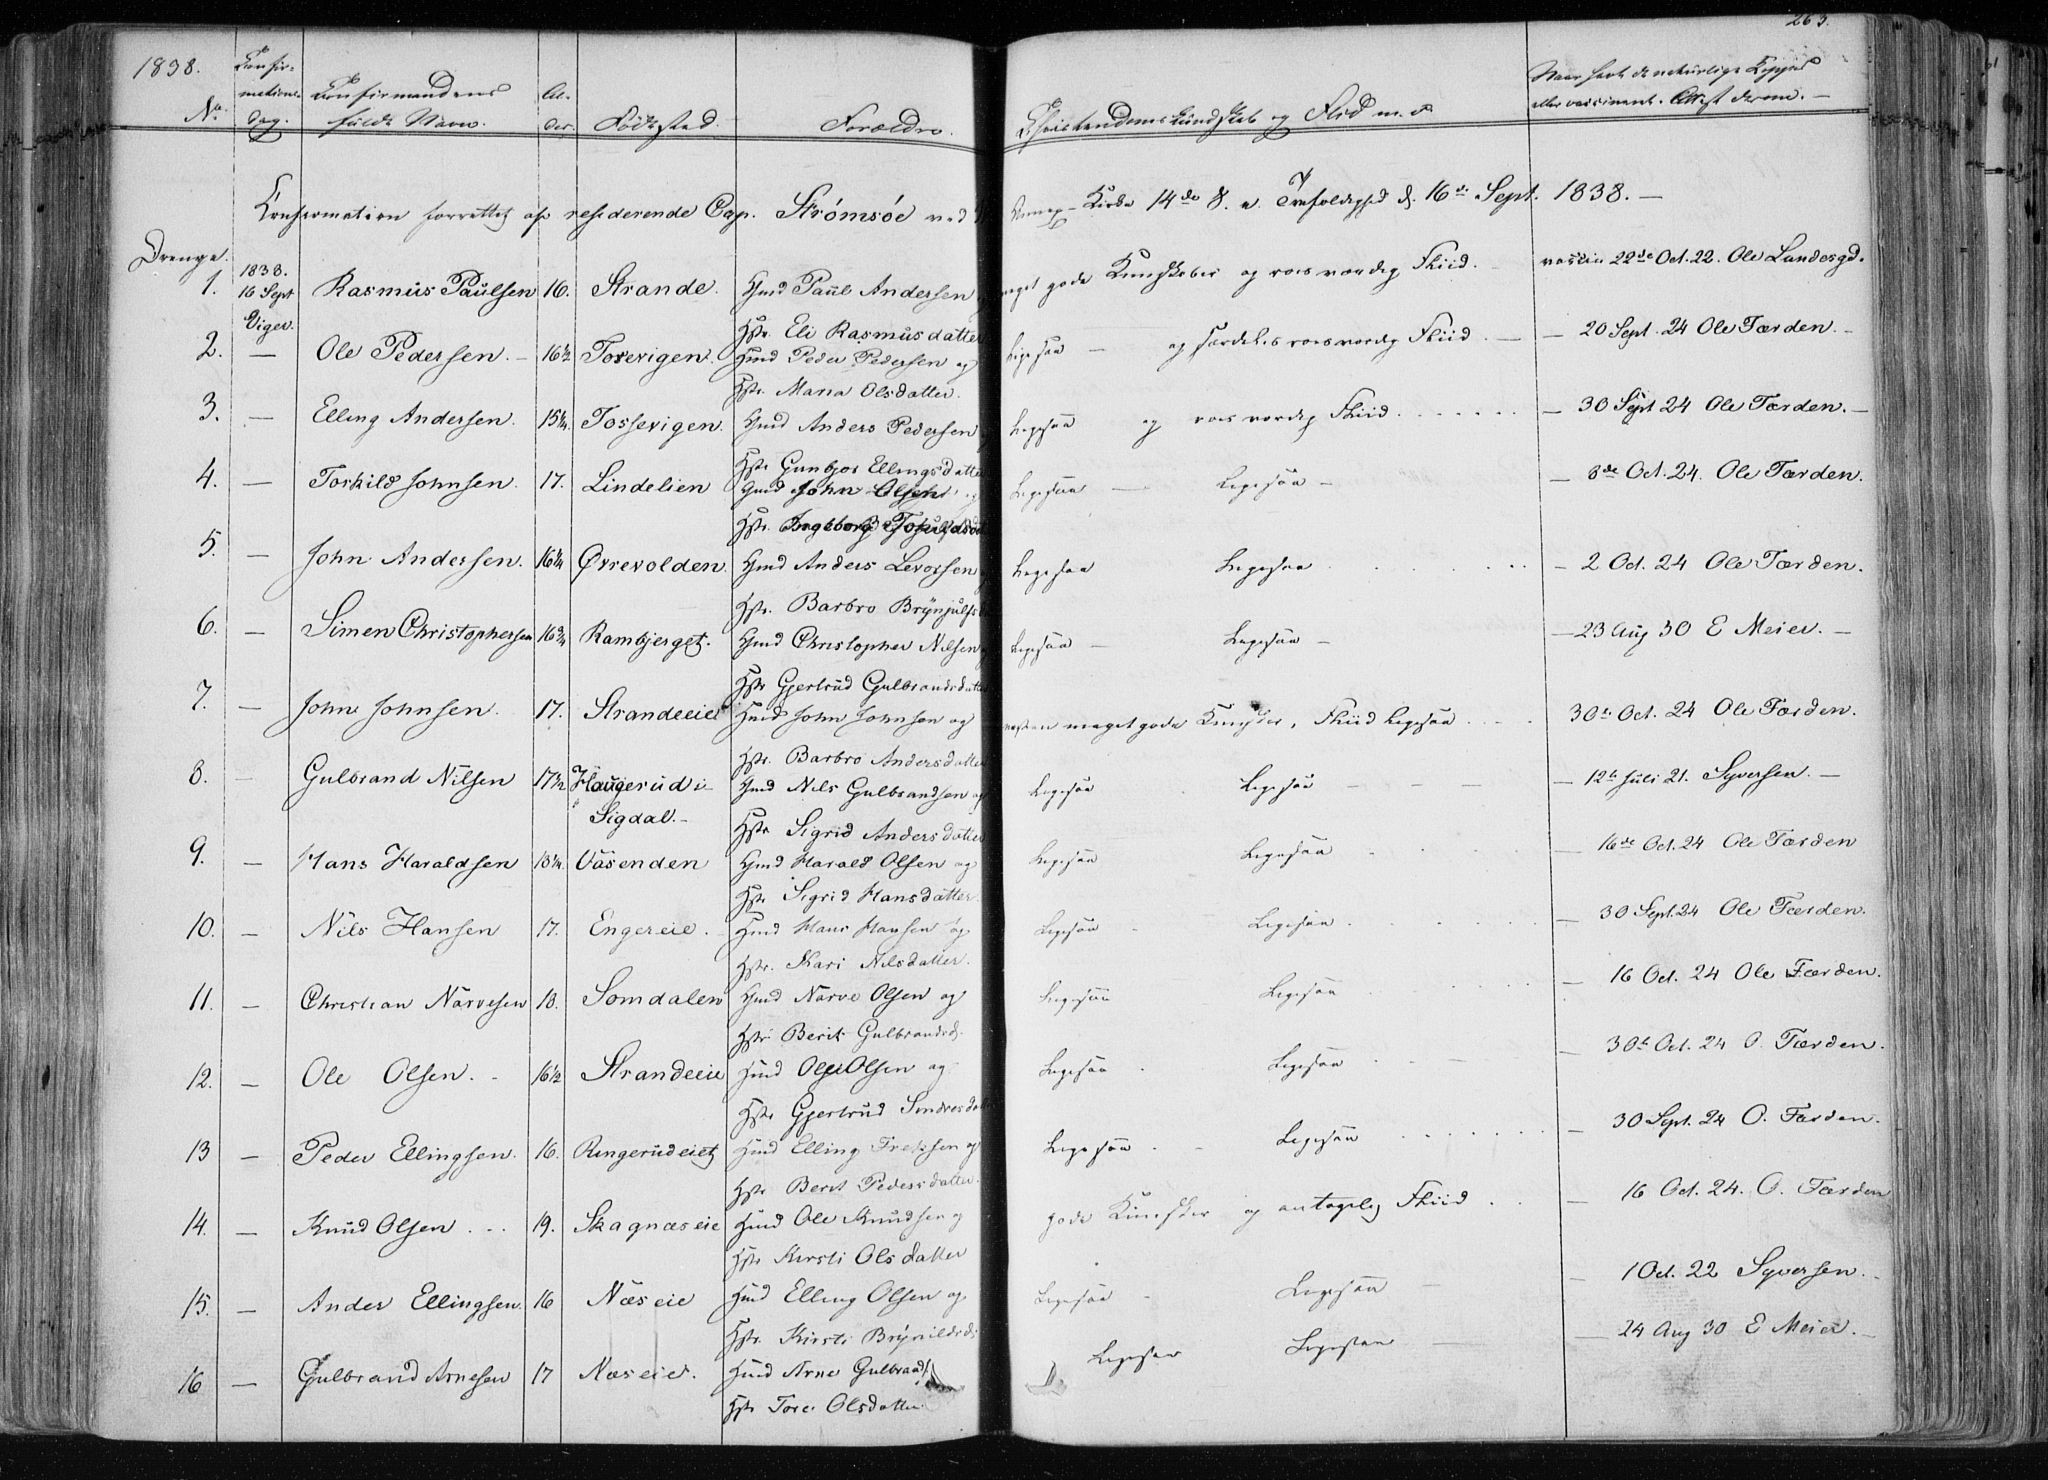 263.
1838.
No. Confirmations dag. Confirmandens fulde Navn. Alder. Fødested. Forældre. Christendoms Kundskab og Flid m. v. Naar havt de naturlige Kopper eller vaccineret. Attest derom. —
Confirmation forrettet af residerende Cap. Strømsøe ved Annex-Kirke 14de S. e. Trefoldighed d. 16de Sept. 1838. —
Drenge.
1. 1838. 16 Sept Viger. Rasmus Paulsen 16. Strande. Hmd Paul Andersen
Hstr. Eli Rasmusdatter
meget gode Kundskaber og roesværdig Fliid. — vaccin 22de Oct. 22. Ole Landesgd.
2. — Ole Pedersen. — 16 1/2 Toverigen. Hmd Peder Pedersen og
Hstr. Maria Olsdatter.
Ligesaa — og særdeles roesværdig Fliid. — — 20 Sept. 24 Ole Færden. —
3. — Elling Andersen. 15 1/4. Tosserigen. Hmd Anders Pedersen
Hstr Gunbjor Ellingsdatter
Ligesaa og roesværdig Fliid. — 30 Sept 24 Ole Færden. —
4. — Torkild Johnsen. 17. Lindelien Hmd John Olsen
Hstr. Ingeborg
Ligesaa — Ligesaa — — 8de Oct. 24. Ole Færden.
5. — John Andersen. 16 1/4 Øvrevolden. Hmd Anders Levorsen
Hstr. Barbro Brynjulfsd
Ligesaa Ligesaa — 2 Oct. 24 Ole Færden.
6. — Simen Christophersen 16 3/4 Rambjerget. Hmd Christopher Nilsen
Hstr Gjertrud Gulbrandsdatter
Ligesaa — Ligesaa — — 23 Aug 30 E Meier. —
7. — John Johnsen. 17. Strandeeie Hmd John Johnsen og
Hstr. Barbro Andersdatter
næsten meget gode Kundsker, Fliid Ligesaa 30te Oct. 24 Ole Færden.
8. — Gulbrand Nilsen 17 1/2 Haugerud i
Sigdal. — Hmd Nils Gulbrandsen og
Hstr Sigrid Andersdatter
Ligesaa Ligesaa — — 12te Juli 21. Syversen. —
9. — Hans Haraldsen 18 1/4. Vasenden Hmd Harald Olsen og
Hstr Sigrid Hansdatter.
Ligesaa Ligesaa — 16de Oct. 24 Ole Færden
10. — Nils Hansen 17. Engereie. Hmd Hans Hansen og
Hstr. Kari Nilsdatter.
Ligesaa Ligesaa — 30 Sept. 24 Ole Færden.
11. — Christian Narvesen 18. Somdalen Hmd Narve Olsen og
Hstr Berit Gulbrandsd.
Ligesaa Ligesaa — 16 Oct. 24 Ole Færden.
12. — Ole Olsen. 16 1/2 Strandeeie Hmd Ole Olsen og
Hstr Gjertrud Sindresdatter
Ligesaa Ligesaa — 30te Oct. 24 O. Færden.
13 — Peder Ellingsen. 16. Ringerudeiet Hmd Elling Ericksen og
Hstr Berit Pedersdatter.
Ligesaa Ligesaa — 30 Sept. 24 O. Færden.
14. — Knud Olsen. 19. Skagnæseie Hmd Ole Knudsen og
Hstr Kirsti Olsdatter
gode Kundsker og antagelig Fliid — 16 Oct. 24. O. Færden
15. — Ander Ellingsen. 16 Næseie Hmd Elling Olsen og
Hstr. Kirsti Brynildsd.
Ligesaa Ligesaa — 1 Oct. 22 Syversen. —
16 — Gulbrand Arnesen 17 Næseie. Hmd Arne Gulbrands.
Hstr Tore Olsdatter
Ligesaa Ligesaa — — 24 Aug 30 E Meier. —